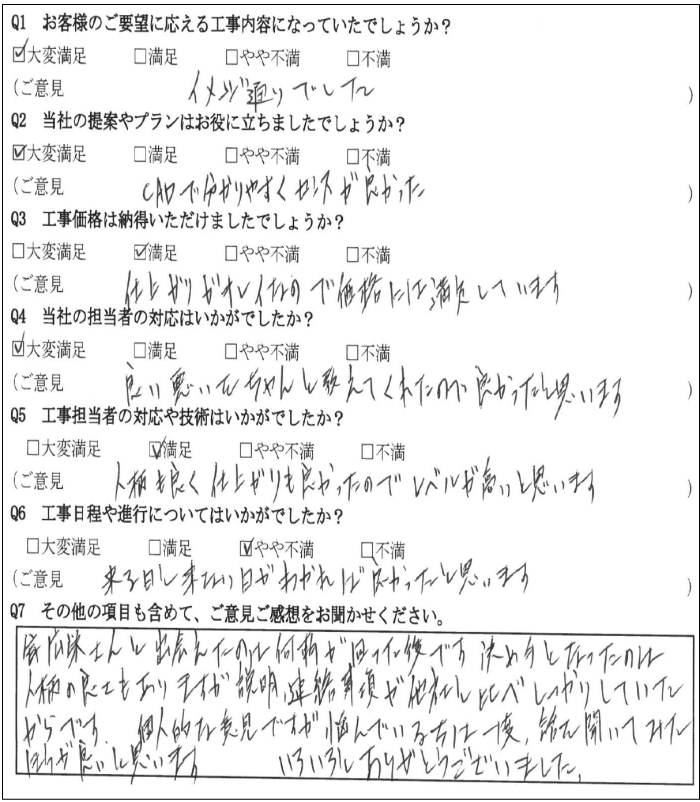 Q1 お客様のご要望に応える工事内容になっていたでしょうか?
☑大変満足 □満足 □やや不満 □不満
(ご意見 イメージ通りでした )
Q2 当社の提案やプランはお役に立ちましたでしょうか?
☑大変満足 □満足 □やや不満 □不満
(ご意見 CADで分かりやすくセンスが良かった )
Q3 工事価格は納得いただけましたでしょうか?
□大変満足 ☑満足 □やや不満 □不満
(ご意見 仕上がりがキレイなので価格には満足しています )
Q4 当社の担当者の対応はいかがでしたか?
☑大変満足 □満足 □やや不満 □不満
(ご意見 良い悪いをちゃんと教えてくれたので良かったと思います )
Q5 工事担当者の対応や技術はいかがでしたか?
□大変満足 ☑満足 □やや不満 □不満
(ご意見 人柄も良く仕上がりも良かったのでレベルが高いと思います )
Q6 工事日程や進行についてはいかがでしたか?
□大変満足 □満足 ☑やや不満 □不満
(ご意見 来る日と来ない日がわかれば良かったと思います )
Q7 その他の項目も含めて、ご意見ご感想をお聞かせください。
さんと出会えたのは何軒か回った後です 決め手となったのは
人柄の良さもありますが説明、連絡事項が他社と比べしっかりしていた
からです。個人的な意見ですが悩んでいる方は一度、話を聞いてみた
ほうが良いと思います いろいろとありがとうございました。